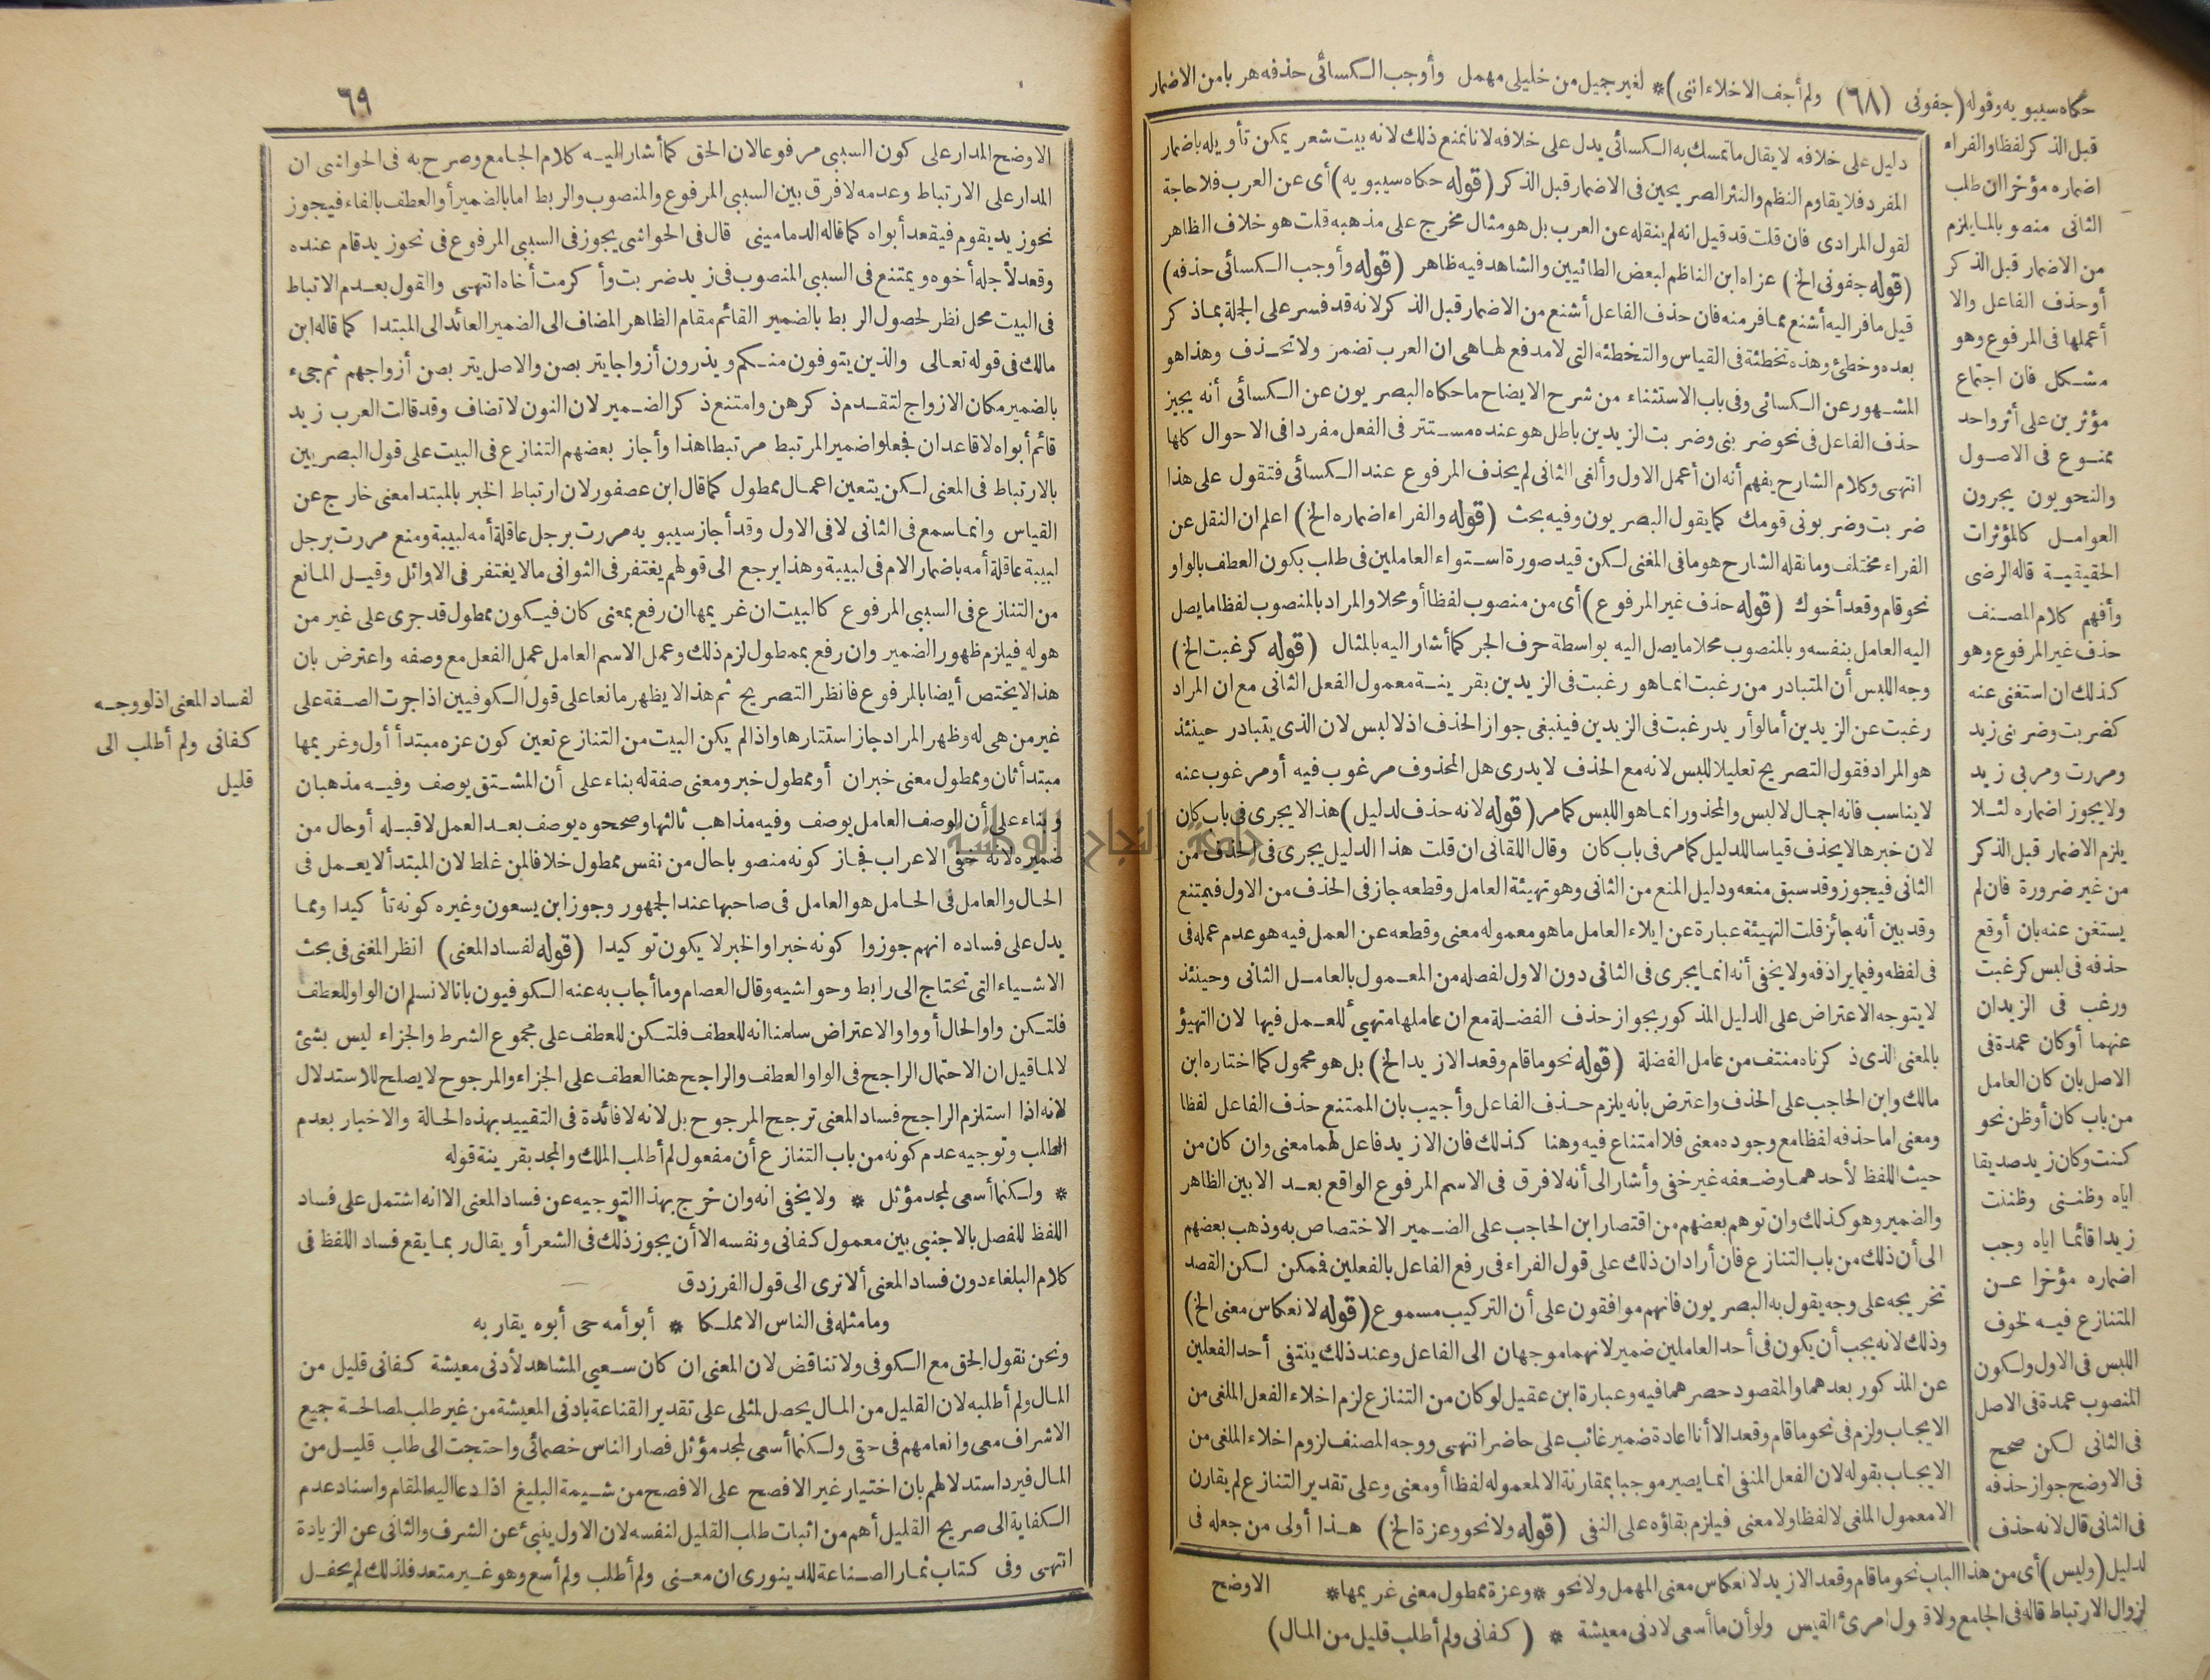 حكاه سيبويه وقوله (جفونى (٦٨) ولم أجف الاخلاء اننى) * لغير جميل من خليلى مهمل وأوجب الكسائى حذفه هربا من الاضمار
قبل الذكر لفظا والفراء
اضماره مؤخرا ان طلب
الثانى منصوبا لما يلزم
من الاضمار قبل الذكر
أوحذف الفاعل والا
أعملها فى المرفوع وهو
مشكل فان اجتماع
مؤثرين على أثر واحد
ممنوع فى الاصول
والنحويون يجرون
العوامل كالمؤثرات
الحقيقية قاله الرضى
وأفهم كلام المصنف
حذف غير المرفوع وهو
كذلك ان استغنى عنه
كضربت وضربنى زيد
ومررت ومربى زيد
ولا يجوز اضماره لئلا
يلزم الاضمار قبل الذكر
من غير ضرورة فان لم
يستغن عنه بان أوقع
حذفه فى لبس كرغبت
ورغب فى الزيدان
عنهما أوكان عمدة فى
الاصل بان كان العامل
من باب كان أوظن نحو
كنت وكان زيد صديقا
اياه وظننى وظننت
زيدا قائما اياه وجب
اضماره مؤخرا عن
المتنازع فيه لخوف
اللبس فى الاول ولكون
المنصوب عمدة فى الاصل
فى الثانى لكن صحح
فى الاوضح جواز حذفه
فى الثانى قال لانه حذف
لدليل (وليس) أى من هذا الباب نحو ما قام وقعد الا زيد لانعكاس معنى المهمل ولا نحو * وعزة ممطول معنى غريمها *
لزوال الارتباط قاله فى الجامع ولا قول امرئ القيس ولو أن ما أسعى لادنى معيشة * (كفانى ولم أطلب قليل من المال)
دليل على خلافه لا يقال ما تمسك به الكسائى يدل على خلافه لانا نمنع ذلك لانه بيت شعر يمكن تأويله باضمار
المفرد فلا يقاوم النظم والنثر الصريحين فى الاضمار قبل الذكر (قوله حكاه سيبويه) أى عن العرب فلا حاجة
لقول المرادى فان قلت قد قيل انه لم ينقله عن العرب بل هو مثال مخرج على مذهبه قلت هو خلاف الظاهر
(قوله جفونى الخ) عزاه ابن الناظم لبعض الطائيين والشاهد فيه ظاهر (قوله وأوجب الكسائى حذفه)
قيل ما فر اليه أشنع مما فر منه فان حذف الفاعل أشنع من الاضمار قبل الذكر لانه قد فسر على الجملة بما ذكر
بعده وخطئ وهذه تخطئة فى القياس والتخطئه التى لا مدفع لها هى ان العرب تضمر ولا تحذف وهذا هو
المشهور عن الكسائى وفى باب الاستثناء من شرح الايضاح ما حكاه البصريون عن الكسائى أنه يجيز
حذف الفاعل فى نحو ضربنى وضربت الزيدين باطل هو عنده مستتر فى الفعل مفردا فى الاحوال كلها
انتهى وكلام الشارح يفهم أنه ان أعمل الاول وألغى الثانى لم يحذف المرفوع عند الكسائى فتقول على هذا
ضربت وضربونى قومك كما يقول البصريون وفيه بحث (قوله والفراء اضماره الخ) اعلم ان النقل عن
الفراء مختلف وما نقله الشارح هو ما فى المغنى لكن قيد صورة استواء العاملين فى طلب بكون العطف بالواو
نحو قام وقعد أخوك (قوله حذف غير المرفوع) أى من منصوب لفظا أو محلا والمراد بالمنصوب لفظا ما يصل
اليه العامل بنفسه وبالمنصوب محلا ما يصل اليه بواسطة حرف الجر كما أشار اليه بالمثال (قوله كرغبت الخ)
وجه اللبس أن المتبادر من رغبت انما هو رغبت فى الزيدين بقرينة معمول الفعل الثانى مع ان المراد
رغبت عن الزيدين أما لو أريد رغبت فى الزيدين فينبغى جواز الحذف اذ لا لبس لان الذى يتبادر حينئذ
هو المراد فقول التصريح تعليلا للبس لانه مع الحذف لا يدرى هل المحذوف مرغوب فيه أو مرغوب عنه
لا يناسب فانه اجمال لا لبس والمحذور انما هو اللبس كما مر (قوله لانه حذف لدليل) هذا لا يجرى فى باب كان
لان خبرها لا يحذف قياسا للدليل كما مر فى باب كان وقال اللقانى ان قلت هذا الدليل يجرى فى الحذف من
الثانى فيجوز وقد سبق منعه ودليل المنع من الثانى وهو تهيئة العامل وقطعه جاز فى الحذف من الاول فيمتنع
وقد بين أنه جائز قلت التهيئة عبارة عن ايلاء العامل ما هو معموله معنى وقطعه عن العمل فيه هو عدم عمله فى
فى لفظه وفيما يرادفه ولا يخفى أنه انما يجرى فى الثانى دون الاول لفصله من المعمول بالعامل الثانى وحينئذ
لا يتوجه الاعتراض على الدليل المذكور بجواز حذف الفضلة مع ان عاملها متهيئ للعمل فيها لان التهيؤ
بالمعنى الذى ذكرناه منتف من عامل الفضلة (قوله نحو ما قام وقعد الا زيد الخ) بل هو محمول كما اختاره ابن
مالك وابن الحاجب على الحذف واعترض بانه يلزم حذف الفاعل وأجيب بان الممتنع حذف الفاعل لفظا
ومعنى اما حذفه لفظا مع وجوده معنى فلا امتناع فيه وهنا كذلك فان الا زيد فاعل لهما معنى وان كان من
حيث اللفظ لأحدهما وضعفه غير خفى وأشار الى أنه لا فرق فى الاسم المرفوع الواقع بعد الا بين الظاهر
والضمير وهو كذلك وان توهم بعضهم من اقتصار ابن الحاجب على الضمير الاختصاص به وذهب بعضهم
الى أن ذلك من باب التنازع فان أراد ان ذلك على قول الفراء فى رفع الفاعل بالفعلين فممكن لكن القصد
تخريجه على وجه يقول به البصريون فانهم موافقون على أن التركيب مسموع (قوله لانعكاس معنى الخ)
وذلك لانه يجب أن يكون فى أحد العاملين ضمير لانهما موجهان الى الفاعل وعند ذلك ينتفى أحد الفعلين
عن المذكور بعدهما والمقصود حصرهما فيه وعبارة ابن عقيل لو كان من التنازع لزم اخلاء الفعل الملغى من
الايجاب ولزم فى نحو ما قام وقعد الا أنا اعادة ضمير غائب على حاضر انتهى ووجه المصنف لزوم اخلاء الملغى من
الايجاب بقوله لان الفعل المنفى انما يصير موجبا بمقارنة الا لمعموله لفظا أو معنى وعلى تقدير التنازع لم يقارن
الا معمول الملغى لا لفظا ولا معنى فيلزم بقاؤه على النفى (قوله ولا نحو وعزة الخ) هذا أولى من جعله فى
الاوضح
٦٩
الاوضح المدار على كون السببى مرفوعا لان الحق كما أشار اليه كلام الجامع وصرح به فى الحواشى ان
المدار على الارتباط وعدمه لا فرق بين السببى المرفوع والمنصوب والربط اما بالضمير أو العطف بالفاء فيجوز
نحو زيد يقوم فيقعد أبواه كما قاله الدمامينى قال فى الحواشى يجوز فى السببى المرفوع فى نحو زيد قام عنده
وقعد لأجله أخوه ويمتنع فى السببى المنصوب فى زيد ضربت وأكرمت أخاه انتهى والقول بعدم الاتباط
فى البيت محل نظر لحصول الربط بالضمير القائم مقام الظاهر المضاف الى الضمير العائد الى المبتدا كما قاله ابن
مالك فى قوله تعالى والذين يتوفون منكم ويذرون أزواجا يتربصن والاصل يتربصن أزواجهم ثم جىء
بالضمير مكان الازواج لتقدم ذكرهن وامتنع ذكر الضمير لان النون لا تضاف وقد قالت العرب زيد
قائم أبواه لا قاعدان فجعلوا ضمير المرتبط مرتبطا هذا وأجاز بعضهم التنازع فى البيت على قول البصريين
بالارتباط فى المعنى لكن يتعين اعمال ممطول كما قال ابن عصفور لان ارتباط الخبر بالمبتدا معنى خارج عن
القياس وانما سمع فى الثانى لا فى الاول وقد أجاز سيبويه مررت برجل عاقلة أمه لبيبة ومنع مررت برجل
لبيبة عاقلة أمه باضمار الام فى لبيبة وهذا يرجع الى قولهم يغتفر فى الثوانى ما لا يغتفر فى الاوائل وقيل المانع
من التنازع فى السببى المرفوع كالبيت ان غريمها ان رفع بمعنى كان فيكون ممطول قد جرى على غير من
هوله فيلزم ظهور الضمير وان رفع بممطول لزم ذلك وعمل الاسم العامل عمل الفعل مع وصفه واعترض بان
هذا لا يختص أيضا بالمرفوع فانظر التصريح ثم هذا لا يظهر مانعا على قول الكوفيين اذا جرت الصفة على
غير من هى له وظهر المراد جاز استتارها واذا لم يكن البيت من التنازع تعين كون عزه مبتدأ أول وغريمها
مبتدأ ثان وممطول معنى خبران أو ممطول خبر ومعنى صفة له بناء على أن المشتق يوصف وفيه مذهبان
وبناء على أن الوصف العامل يوصف وفيه مذاهب ثالثها وصححوه يوصف بعد العمل لا قبله أو حال من
ضميره لانه حتى الاعراب فجاز كونه منصوبا حال من نفس ممطول خلافا لمن غلط لان المبتدأ لا يعمل فى
الحال والعامل فى الحامل هو العامل فى صاحبها عند الجمهور وجوز ابن يسعون وغيره كونه تأكيدا ومما
يدل على فساده انهم جوزوا كونه خبرا والخبر لا يكون توكيدا (قوله لفساد المعنى) انظر المغنى فى بحث
الاشياء التى تحتاج الى رابط وحواشيه وقال العصام وما أجاب به عنه الكوفيون بانا لا نسلم ان الواو للعطف
فلتكن واو الحال أو واو الاعتراض سلمنا انه للعطف فلتكن للعطف على مجموع الشرط والجزاء ليس بشئ
لا لما قيل ان الاحتمال الراجح فى الواو العطف والراجح هنا العطف على الجزاء والمرجوح لا يصلح للاستدلال
لانه اذا استلزم الراجح فساد المعنى ترجح المرجوح بل لانه لا فائدة فى التقييد بهذه الحالة والاخبار بعدم
الطلب وتوجيه عدم كونه من باب التنازع أن مفعول لم أطلب الملك والمجد بقرينة قوله
* ولكنما أسعى لمجد مؤثل * ولا يخفى انه وان خرج بهذا التوجيه عن فساد المعنى الا انه اشتمل على فساد
اللفظ للفصل بالاجنبى بين معمول كفانى ونفسه الا أن يجوز ذلك فى الشعر أو يقال ربما يقع فساد اللفظ فى
كلام البلغاء دون فساد المعنى ألا ترى الى قول الفرزدق
وما مثله فى الناس الا مملكا * أبو أمه حى أبوه يقاربه
ونحن نقول الحق مع الكوفى ولا تناقض لان المعنى ان كان سعيي المشاهد لأدنى معيشة كفانى قليل من
المال ولم أطلبه لان القليل من المال يحصل لمثلى على تقدير القناعة بادنى المعيشة من غير طلب لمصالحة جميع
الاشراف معى وانعامهم فى حقى ولكنما أسعى لمجد مؤثل فصار الناس خصمائى واحتجت الى طلب قليل من
المال فيرد استدلالهم بان اختيار غير الافصح على الافصح من شيمة البليغ اذا دعا اليه المقام واسناد عدم
الكفاية الى صريح القليل أهم من اثبات طلب القليل لنفسه لان الاول ينبئ عن الشرف والثانى عن الزيادة
انتهى وفى كتاب ثمار الصناعة للدينورى ان معنى ولم أطلب ولم أسع وهو غير متعد فلذلك لم يحفل
لفساد المعنى اذ لو وجه
كفانى ولم أطلب الى
قليل
جامعة النجاح الوطنية